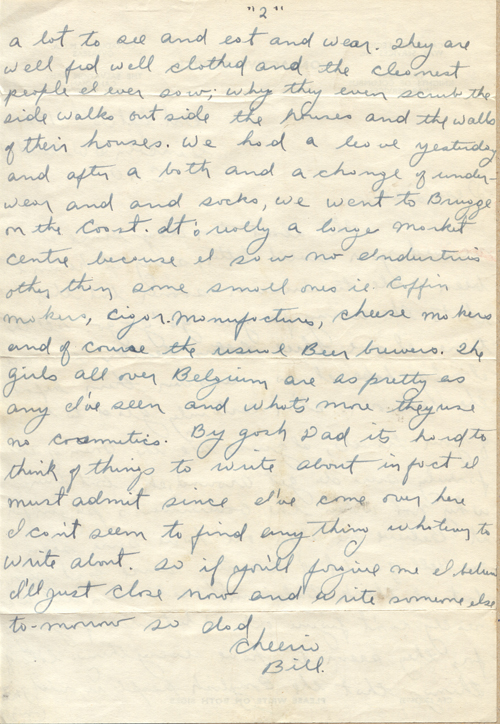 "2"
a lot to see and eat and wear. They are
well fed well clothed and the cleanest
people I ever saw; why they even scrub the
side walks out side the houses and the walls
of their houses. We had a leave yesterday
and after a bath and a change of under-
wear and and socks, we went to Brugge
on the Coast. It's really a large market
centre because I saw no industries
other than some small ones ie Coffin
makers, Cigar. Manufactures, cheese makers
and of course the usual Beer brewers. The
girls all over Belgium are as pretty as
any I've seen and what's more they use
no cosmetics. By gosh Dad its hard to
think of things to write about infact I
must admit since I've come over here
I can't seem to find any thing to
write about. So if you'll forgive me I
I'll just close now and write someone else
to-morrow so dad
Cheerio
Bill.